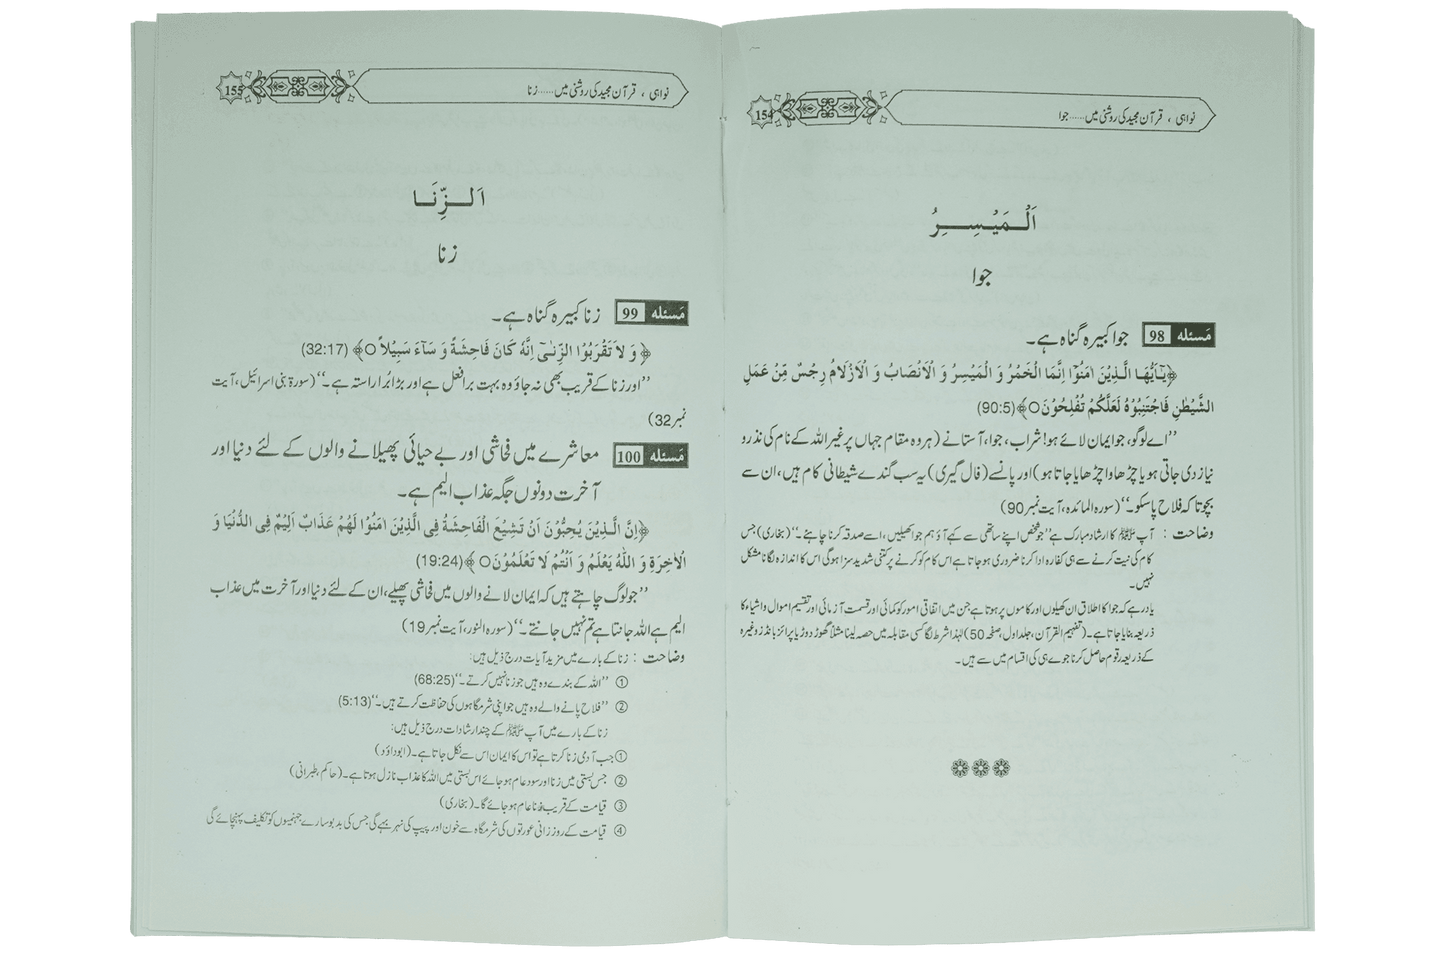 نواہی ، قرآن مجید کی روشنی میں......جوا
154
اَلْمَيْسِرُ
جوا
مَسئله 98 جوا کبیرہ گناہ ہے۔
﴿يٰٓاَيُّهَا الَّذِيْنَ اٰمَنُوْٓا اِنَّمَا الْخَمْرُ وَ الْمَيْسِرُ وَ الْاَنْصَابُ وَ الْاَزْلَامُ رِجْسٌ مِّنْ عَمَلِ
الشَّيْطٰنِ فَاجْتَنِبُوْهُ لَعَلَّكُمْ تُفْلِحُوْنَ○﴾(90:5)
’’اے لوگو، جو ایمان لائے ہو! شراب، جوا، آستانے (ہر وہ مقام جہاں پر غیر اللہ کے نام کی نذر و
نیاز دی جاتی ہو یا چڑھاوا چڑھایا جاتا ہو) اور پانسے (فال گیری) یہ سب گندے شیطانی کام ہیں، ان سے
بچو تا کہ فلاح پاسکو۔‘‘ (سورہ المائدہ، آیت نمبر 90)
وضاحت : آپ ﷺ کا ارشاد مبارک ہے ’’جو شخص اپنے ساتھی سے کہے آؤ ہم جوا کھیلیں ، اسے صدقہ کرنا چاہئے۔‘‘ (بخاری) جس
کام کی نیت کرنے سے ہی کفارہ ادا کرنا ضروری ہو جاتا ہے اس کام کو کرنے پر کتنی شدید سزا ہوگی اس کا اندازہ لگانا مشکل
نہیں۔
یاد رہے کہ جوا کا اطلاق ان کھیلوں اور کاموں پر ہوتا ہے جن میں اتفاقی امور کو کمائی اور قسمت آزمائی اور تقسیم اموال و اشیاء کا
ذریعہ بنایا جاتا ہے۔ (تفہیم القرآن، جلد اول، صفحہ 50) لہٰذا شرط لگا کسی مقابلہ میں حصہ لینا مثلاً گھوڑ دوڑ یا پرائز بانڈز وغیرہ
کے ذریعہ رقوم حاصل کرنا جوے ہی کی اقسام میں سے ہیں۔
نواہی ، قرآن مجید کی روشنی میں......زنا
155
اَلزِّنَا
زنا
مَسئله 99 زنا کبیرہ گناہ ہے۔
﴿وَ لَا تَقْرَبُوْا الزِّنٰىٓ اِنَّهٗ كَانَ فَاحِشَةً وَ سَآءَ سَبِيْلًا○﴾(32:17)
’’اور زنا کے قریب بھی نہ جاؤ وہ بہت برا فعل ہے اور بڑا بُرا راستہ ہے۔‘‘ (سورۃ بنی اسرائیل، آیت
نمبر 32)
مَسئله 100 معاشرے میں فحاشی اور بے حیائی پھیلانے والوں کے لئے دنیا اور
آخرت دونوں جگہ عذاب الیم ہے۔
﴿اِنَّ الَّذِيْنَ يُحِبُّوْنَ اَنْ تَشِيْعَ الْفَاحِشَةُ فِى الَّذِيْنَ اٰمَنُوْا لَهُمْ عَذَابٌ اَلِيْمٌ فِى الدُّنْيَا وَ
الْاٰخِرَةِ وَ اللّٰهُ يَعْلَمُ وَ اَنْتُمْ لَا تَعْلَمُوْنَ○﴾(19:24)
’’جو لوگ چاہتے ہیں کہ ایمان لانے والوں میں فحاشی پھیلے، ان کے لئے دنیا اور آخرت میں عذاب
الیم ہے اللہ جانتا ہے تم نہیں جانتے۔‘‘ (سورہ النور، آیت نمبر 19)
وضاحت : زنا کے بارے میں مزید آیات درج ذیل ہیں:
① ’’اللہ کے بندے وہ ہیں جو زنا نہیں کرتے۔‘‘ (68:25)
② ’’فلاح پانے والے وہ ہیں جو اپنی شرمگاہوں کی حفاظت کرتے ہیں۔‘‘ (5:13)
زنا کے بارے میں آپ ﷺ کے چند ارشادات درج ذیل ہیں:
① جب آدمی زنا کرتا ہے تو اس کا ایمان اس سے نکل جاتا ہے۔ (ابوداؤد)
② جس بستی میں زنا اور سود عام ہو جائے اس بستی میں اللہ کا عذاب نازل ہوتا ہے۔ (حاکم، طبرانی)
③ قیامت کے قریب زنا عام ہو جائے گا۔ (بخاری)
④ قیامت کے روز زانی عورتوں کی شرمگاہ سے خون اور پیپ کی نہر بہے گی جس کی بدبو سارے جہنمیوں کو تکلیف پہنچائے گی